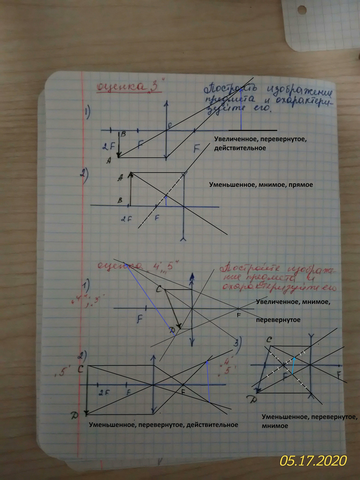 оценка „3"
Построить изображение
предмета и охарактери-
зуйте его.
1)
B
2F
F
F
F
A
Увеличенное, перевернутое,
действительное
2)
A
Уменьшенное, мнимое, прямое
B
2F
F
оценка „4", „5"
Постройте изображе-
ние предмета и
охарактеризуйте его
1)
C
„4", „5"
F
F
D
Увеличенное, мнимое,
перевернутое
2)
3)
C
„5"
2F
F
F
D
C
D
Уменьшенное, перевернутое, действительное
Уменьшенное, перевернутое,
мнимое
05.17.2020